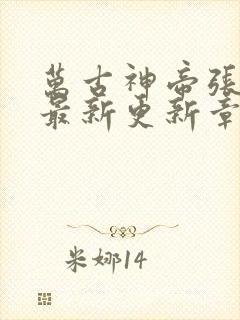 萬古神帝張
最新更新章
米娜14